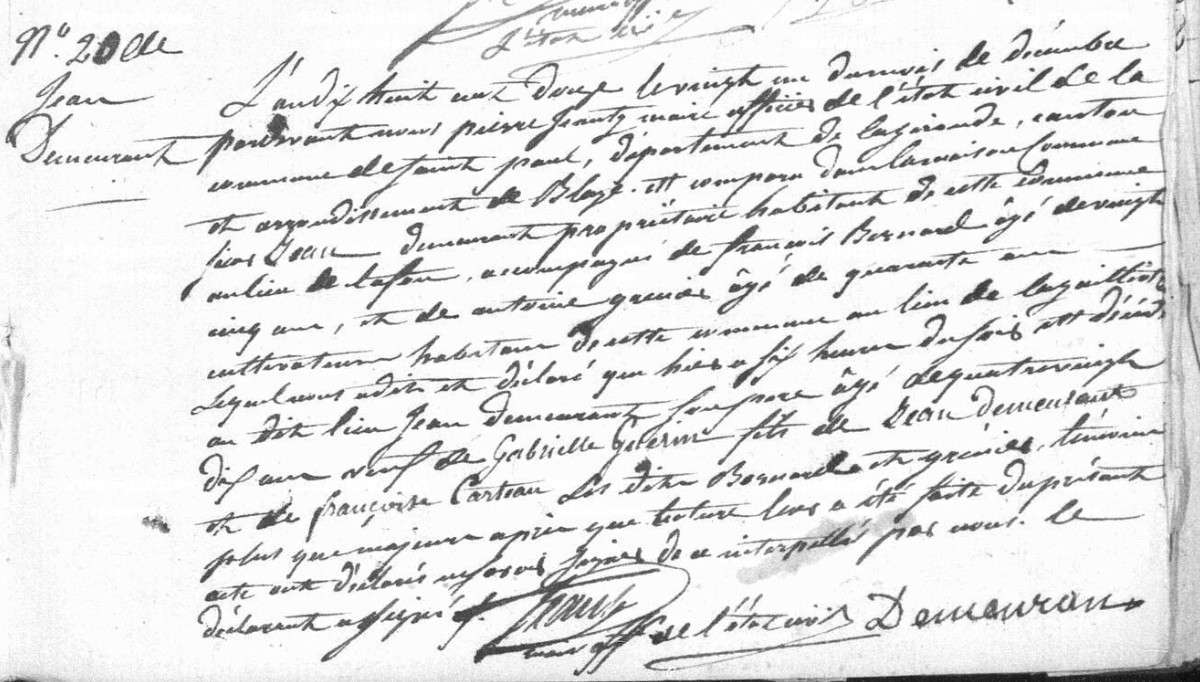 l'état civil
N.º 20 de
Jean
Demeurant
L'an dix huit cent douze le vingt un du mois de décembre
pardevant nous pierre maire officier de l'état civil de la
commune de saint paul, département de la gironde, canton
et arrondissement de Blaye. est comparu dans la maison Commune
sieur Jean demeurant propriétaire habitant de cette commune
au lieu de lafon, accompagné de françois Bernard âgé de vingt
cinq ans, et de antoine grenier âgé de quarante ans
cultivateurs habitans de cette commune au lieu de
Lequel nous a dit et déclaré que hier a six heures du soir est décédé
au dit lieu Jean demeurant son père âgé de quatre vingt
dix ans veuf de Gabrielle Guérin fils de Jean demeurant
et de françoise Carteau Les dits Bernard et grenier, témoins
plus que majeurs après que lecture leur a été faite du présent
acte ont déclaré ne savoir signer de ce interpellés par nous. le
déclarant a signé
maire off. de l'état civil Demeuran